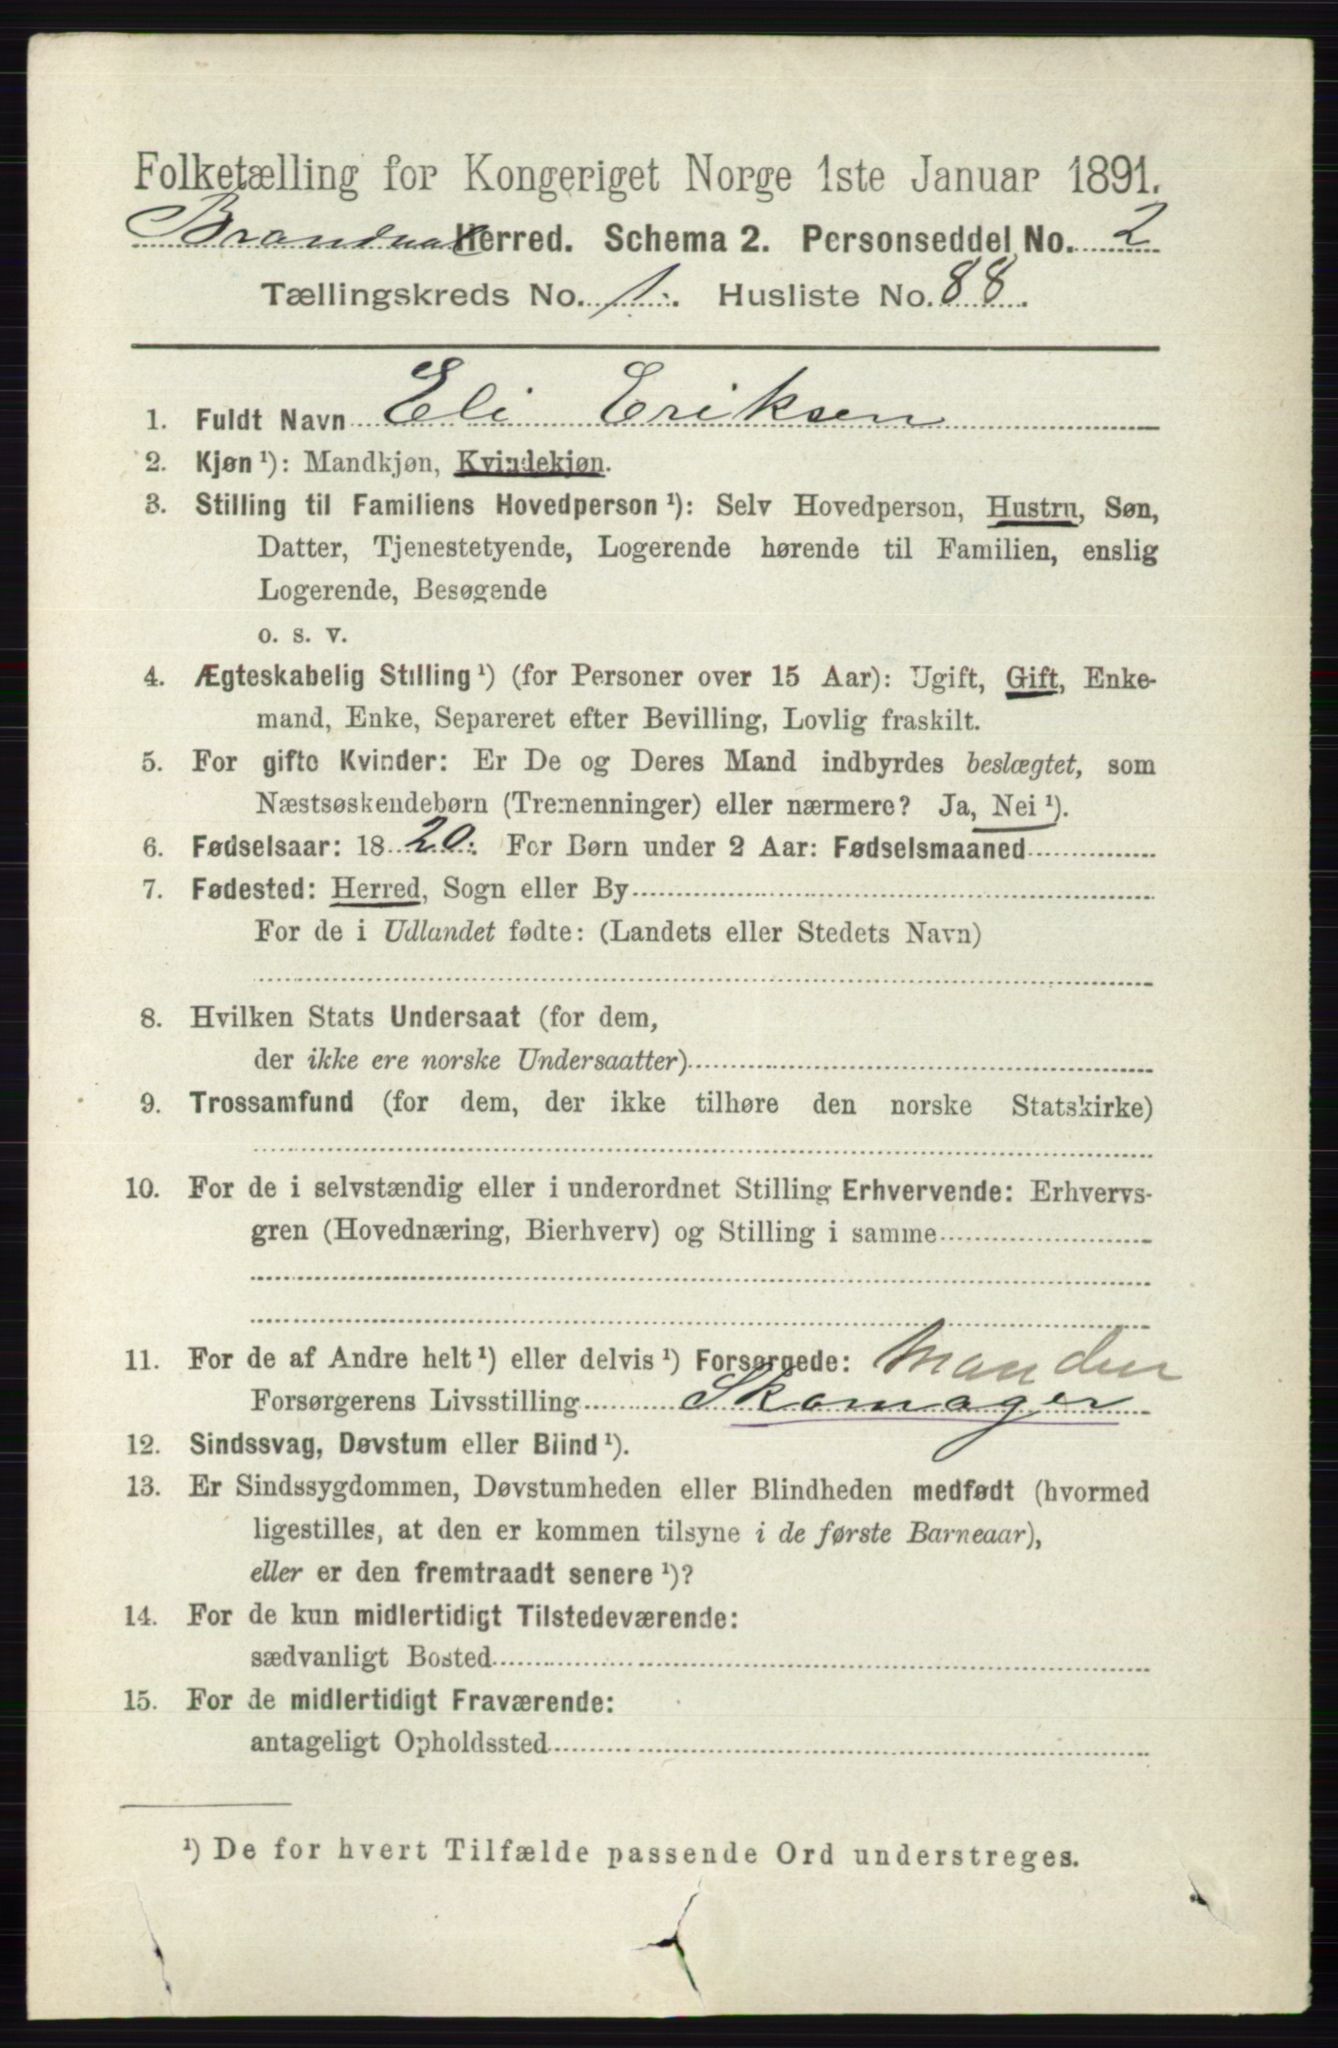 Folketælling for Kongeriget Norge 1ste Januar 1891.
Brandval Herred. Schema 2. Personseddel No. 2
Tællingskreds No. 1. Husliste No. 88.
1. Fuldt Navn Eli Eriksen
2. Kjøn ¹): Mandkjøn, Kvindekjøn.
3. Stilling til Familiens Hovedperson ¹): Selv Hovedperson, Hustru, Søn,
Datter, Tjenestetyende, Logerende hørende til Familien, enslig
Logerende, Besøgende
o. s. v.
4. Ægteskabelig Stilling ¹) (for Personer over 15 Aar): Ugift, Gift, Enke-
mand, Enke, Separeret efter Bevilling, Lovlig fraskilt.
5. For gifte Kvinder: Er De og Deres Mand indbyrdes beslægtet, som
Næstsøskendebørn (Tremenninger) eller nærmere? Ja, Nei ¹).
6. Fødselsaar: 1820. For Børn under 2 Aar: Fødselsmaaned
7. Fødested: Herred, Sogn eller By
For de i Udlandet fødte: (Landets eller Stedets Navn)
8. Hvilken Stats Undersaat (for dem,
der ikke ere norske Undersaatter)
9. Trossamfund (for dem, der ikke tilhøre den norske Statskirke)
10. For de i selvstændig eller i underordnet Stilling Erhvervende: Erhvervs-
gren (Hovednæring, Bierhverv) og Stilling i samme
11. For de af Andre helt ¹) eller delvis ¹) Forsørgede: Manden
Forsørgerens Livsstilling Skomager
12. Sindssvag, Døvstum eller Blind ¹).
13. Er Sindssygdommen, Døvstumheden eller Blindheden medfødt (hvormed
ligestilles, at den er kommen tilsyne i de første Barneaar),
eller er den fremtraadt senere ¹)?
14. For de kun midlertidigt Tilstedeværende:
sædvanligt Bosted
15. For de midlertidigt Fraværende:
antageligt Opholdssted
¹) De for hvert Tilfælde passende Ord understreges.